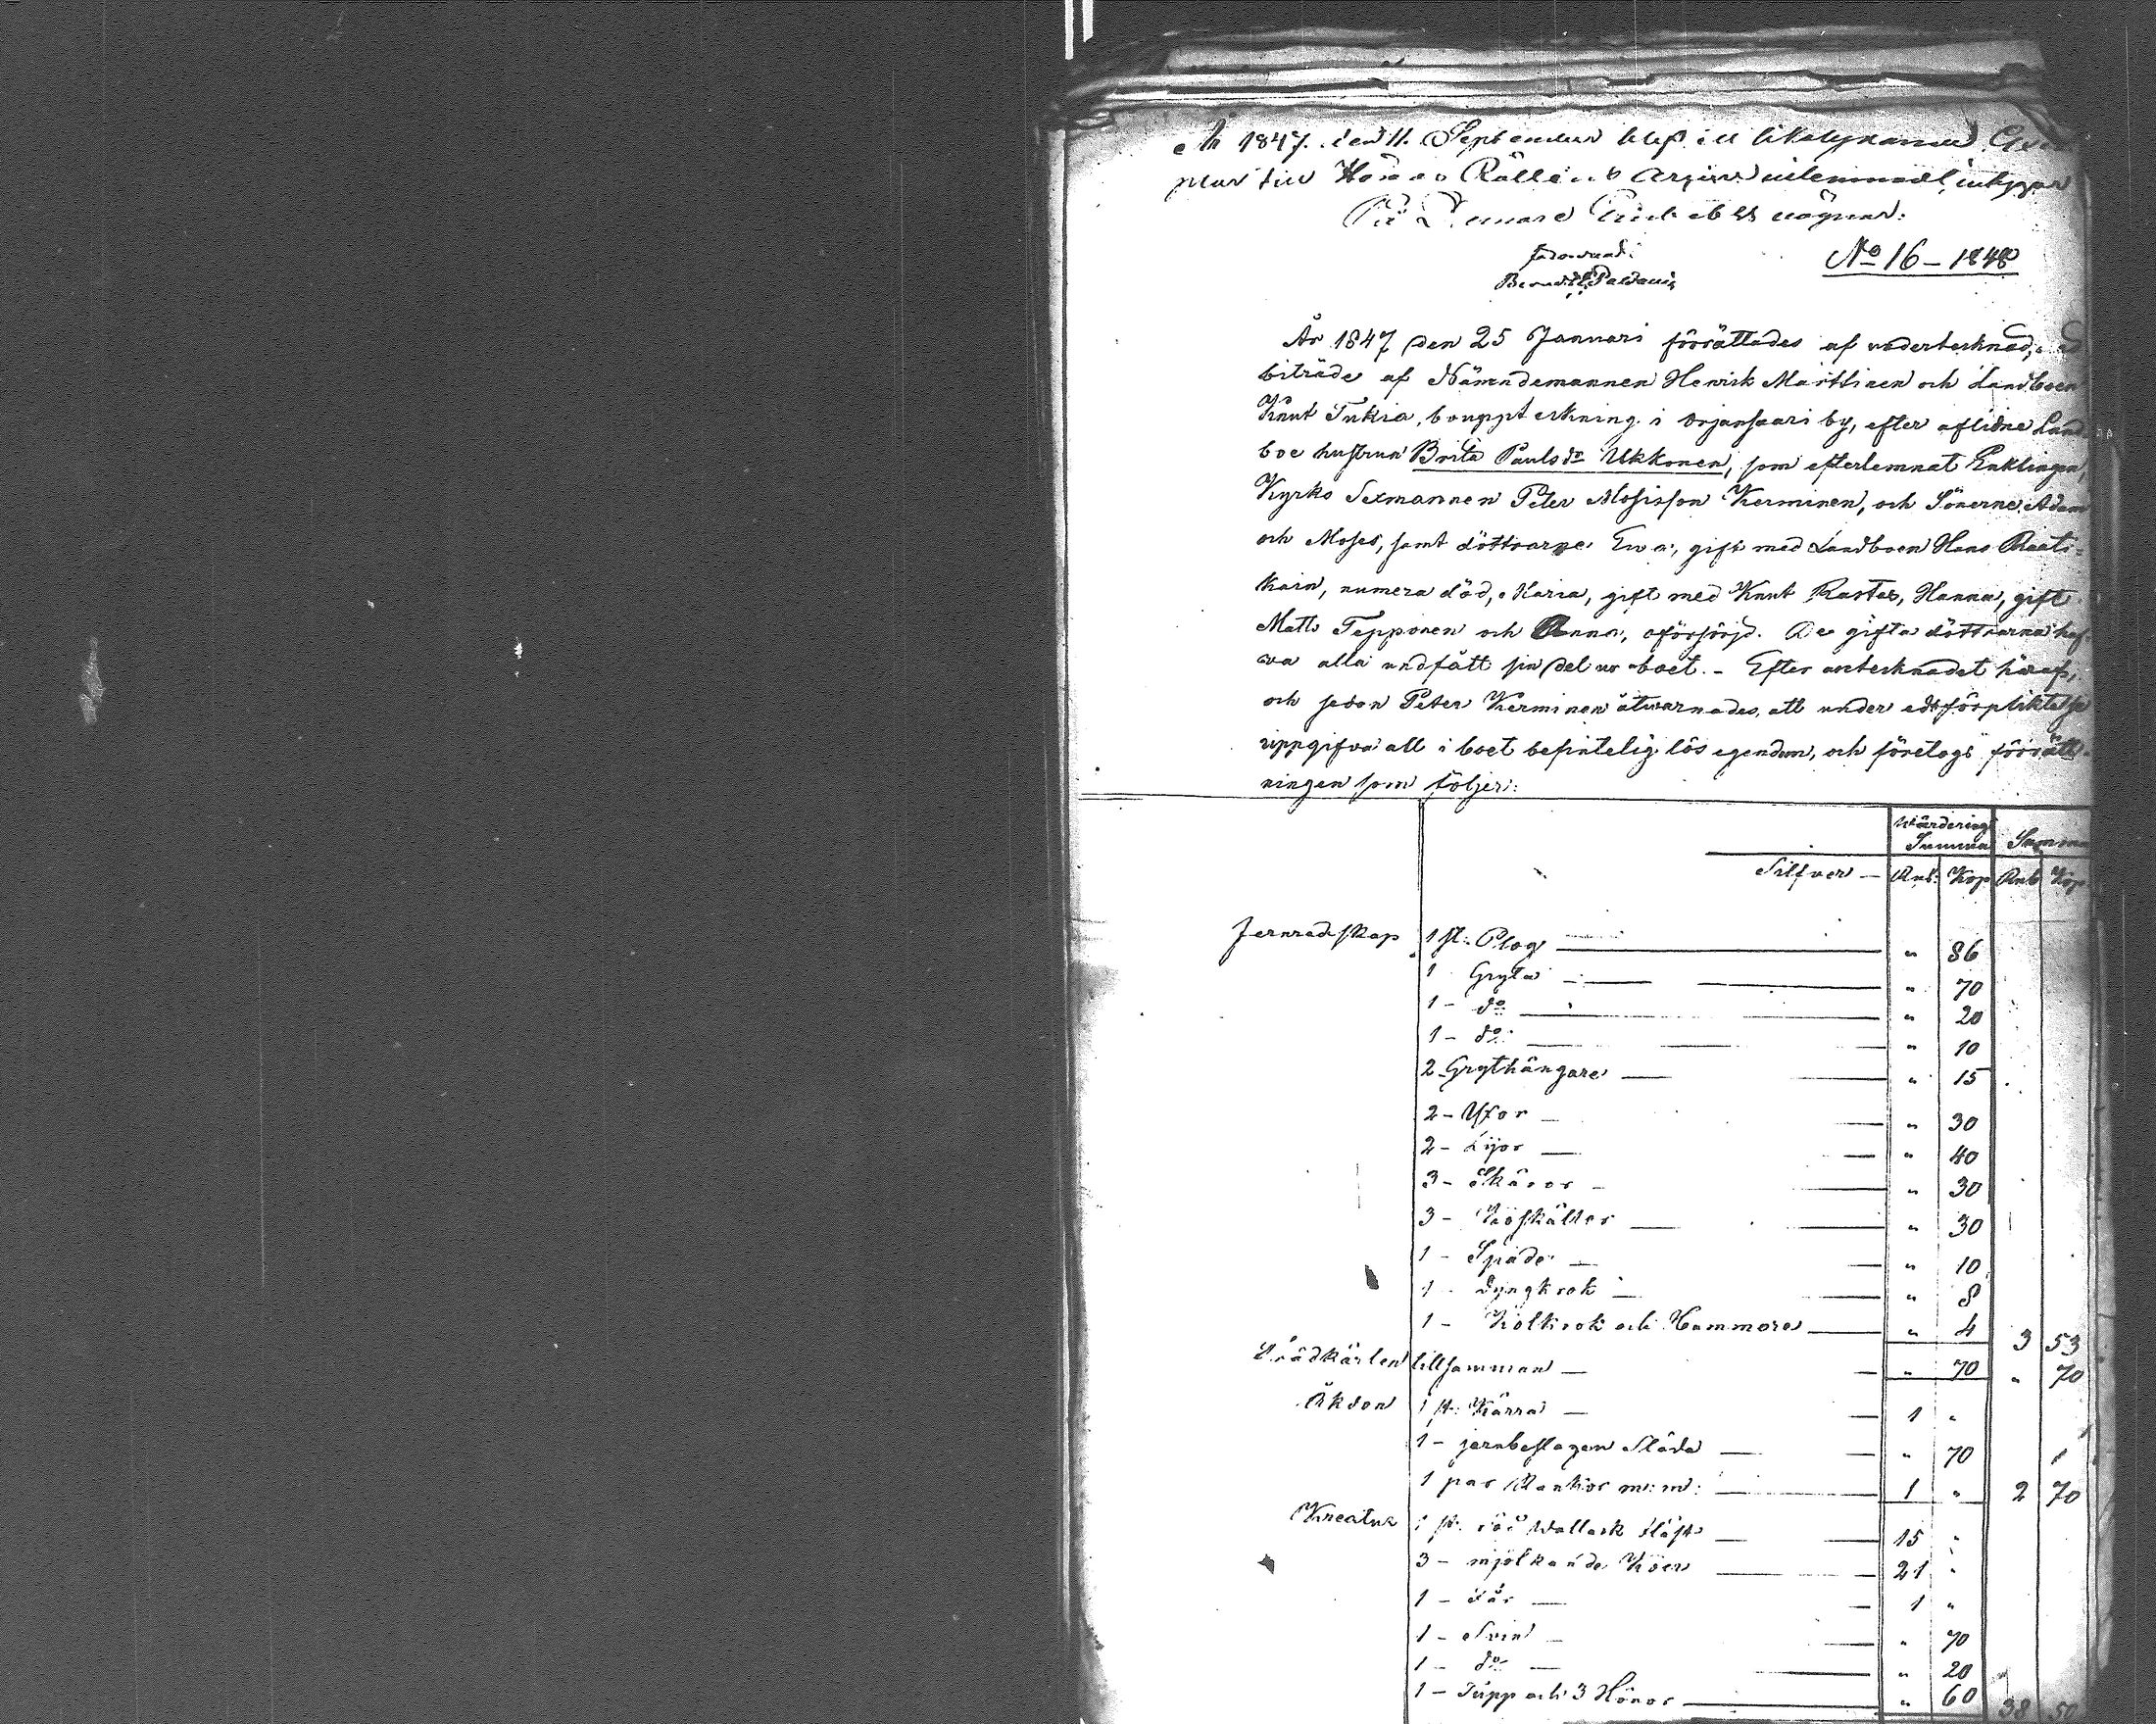 År 1847. den 11. September blef ett likalydande Exem
plar till Härads Rättens Arkiv inlemnadt, intygar
På Domare Embetets vägnar:
No 16 – 1848
År 1847 den 25 Januari förrättades af undertecknad, med
biträde af Nämndemannen Henrik Marttinen och Landboen
Knut Tukia, bouppteckning i Orjansaari by, efter aflidne Land
boe hustrun Brita Paulsdr Ukkonen, som efterlemnat Enklingen,
Kyrko Sexmannen Peter Mosisson Kerminen, och Sönerne Adam
och Moses, samt döttrarne Eva, gift med Landboen Hans Raati-
kain, numera död, Maria, gift med Knut Rastas, Hanna, gift
Matts Tepponen och Anna, oförsörjd. De gifta döttrarna haf-
va alla undfått sin del ur boet. – Efter antecknadet häraf,
och sedan Peter Kerminen åtvarnades, att under edsförpliktelse
uppgifva all i boet befintelig lös egendom, och företogs förrätt-
ningen som följer:
Wärderings Summa Summa
Silfver – Rub: Kop Rub Kop
Jernredskap 1 st: Plog " 86
1 Gryta " 70
1 – do " 20
1 – do " 10
2 Grythängare " 15
2 – Yxor " 30
2 – Lijor " 40
3 – Skäror " 30
3 – " 30
1 – Spade " 10
1 – Dyngkrok " 8
1 – Kolkrok och Hammare " 4 3 53
Trädkärlen tillsamman " 70 " 70
Åkdon 1 st: Kärra 1 "
1 – jernbeslagen Släda " 70
1 par Rankor m: m: 1 " 2 70
Kreatur 1 st. röd Wallack Häst 15 "
3 – mjölkande Koer 21 "
1 – Får 1 "
1 – Svin " 70
1 – do " 20
1 – Tupp och 3 Hönor " 60 38 50